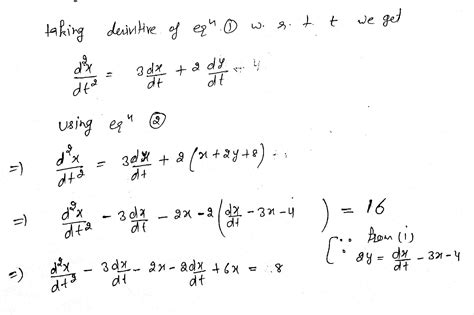 taking derivitive of eqⁿ ① w. r. t t we get
d²x/dt² = 3 dx/dt + 2 dy/dt - 4
using eqⁿ ②
⇒) d²x/dt² = 3 dx/dt + 2 (x + 2y + 8)
⇒) d²x/dt² - 3 dx/dt - 2x - 2 (dx/dt - 3x - 4) = 16
(∵ from (i)
2y = dx/dt - 3x - 4
⇒) d²x/dt² - 3 dx/dt - 2x - 2 dx/dt + 6x = 8